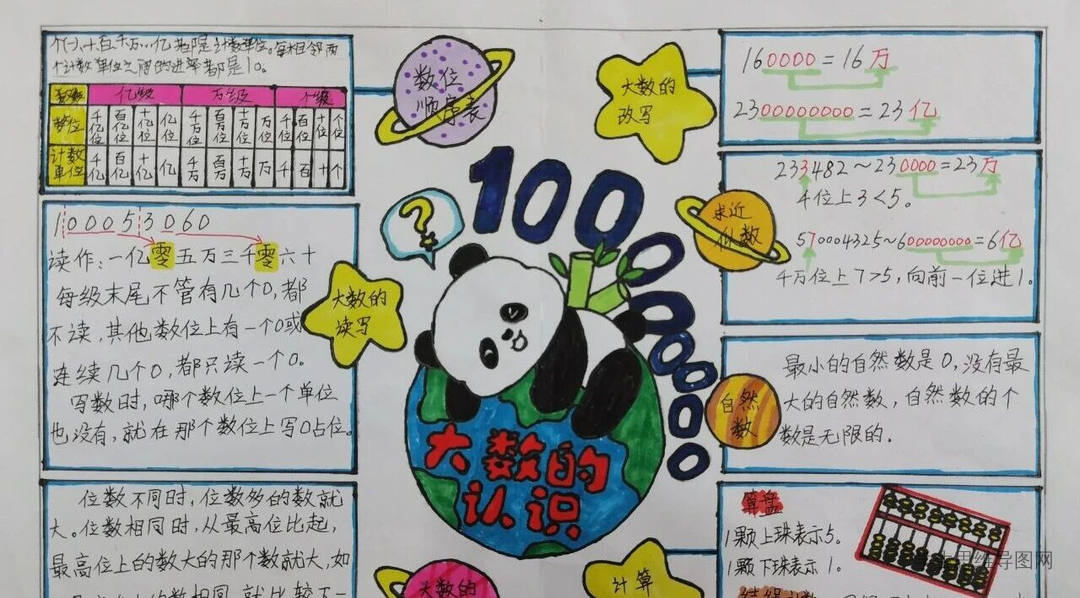 个(一)、十、百、千、万…亿都是计数单位。每相邻两
个计数单位之间的进率都是10。
数级 亿级 万级 个级
数位 千亿位 百亿位 十亿位 亿位 千万位 百万位 十万位 万位 千位 百位 十位 个位
计数单位 千亿 百亿 十亿 亿 千万 百万 十万 万 千 百 十 个
数位
顺序表
大数的
改写
160000=16万
2300000000=23亿
1000000000
?
求近
似数
233482~230000=23万
千位上3<5。
570004325~600000000=6亿
千万位上7>5,向前一位进1。
100053060
读作:一亿零五万三千零六十
每级末尾不管有几个0,都
不读,其他数位上有一个0或
连续几个0,都只读一个0。
写数时,哪个数位上一个单位
也没有,就在那个数位上写0占位。
大数的
读写
大数的
认识
自然
数
最小的自然数是0,没有最
大的自然数,自然数的个
数是无限的.
位数不同时,位数多的数就
大。位数相同时,从最高位比起,
最高位上的数大的那个数就大,如
大数的
计算
算盘
1颗上珠表示5。
1颗下珠表示1。
思维导图网